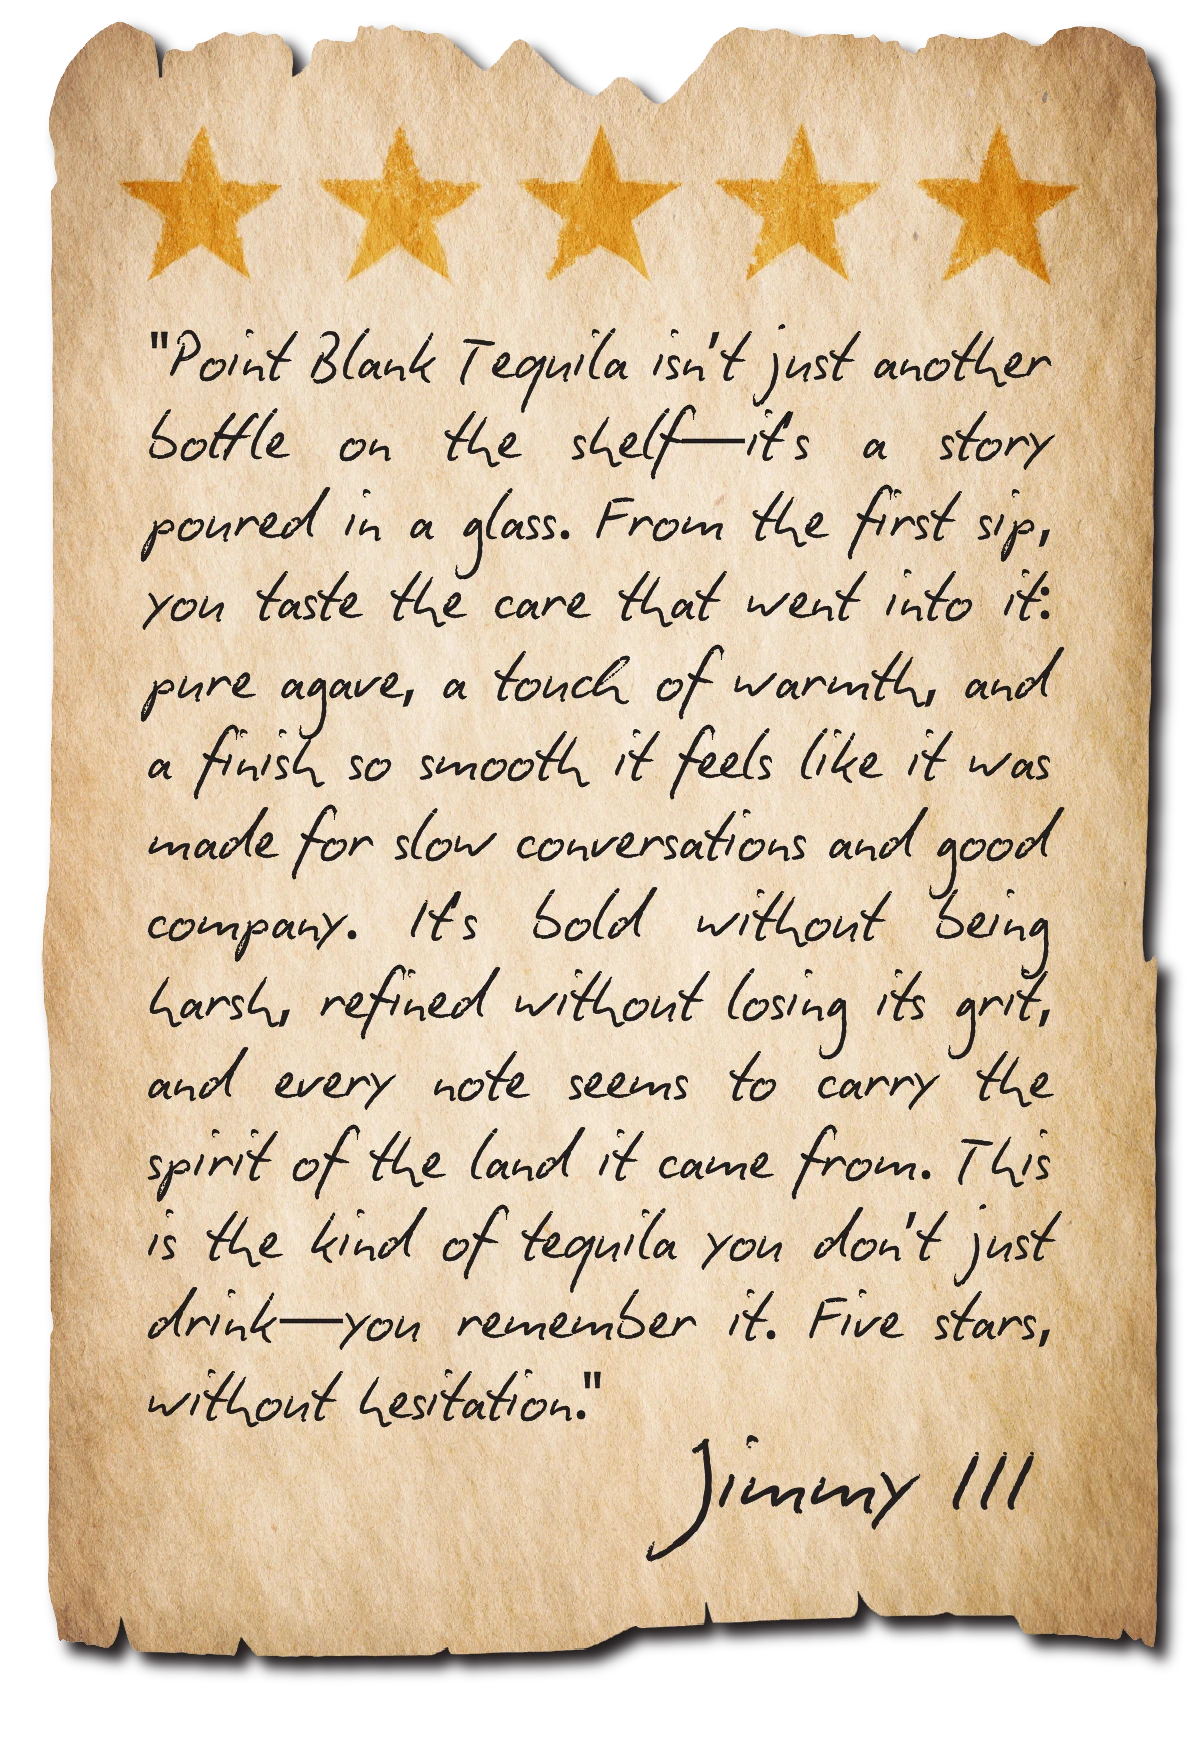 "Point Blank Tequila isn't just another
bottle on the shelf—it's a story
poured in a glass. From the first sip,
you taste the care that went into it:
pure agave, a touch of warmth, and
a finish so smooth it feels like it was
made for slow conversations and good
company. It's bold without being
harsh, refined without losing its grit,
and every note seems to carry the
spirit of the land it came from. This
is the kind of tequila you don't just
drink—you remember it. Five stars,
without hesitation."
Jimmy III